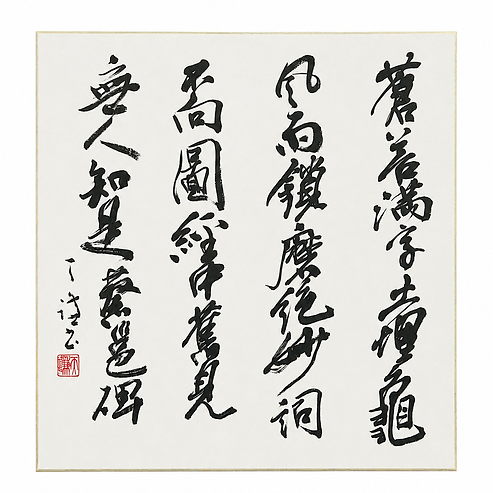 蒼苔滿字土埋龜
風雨銷磨絕妙詞
不向圖經中舊見
無人知是蔡邕碑